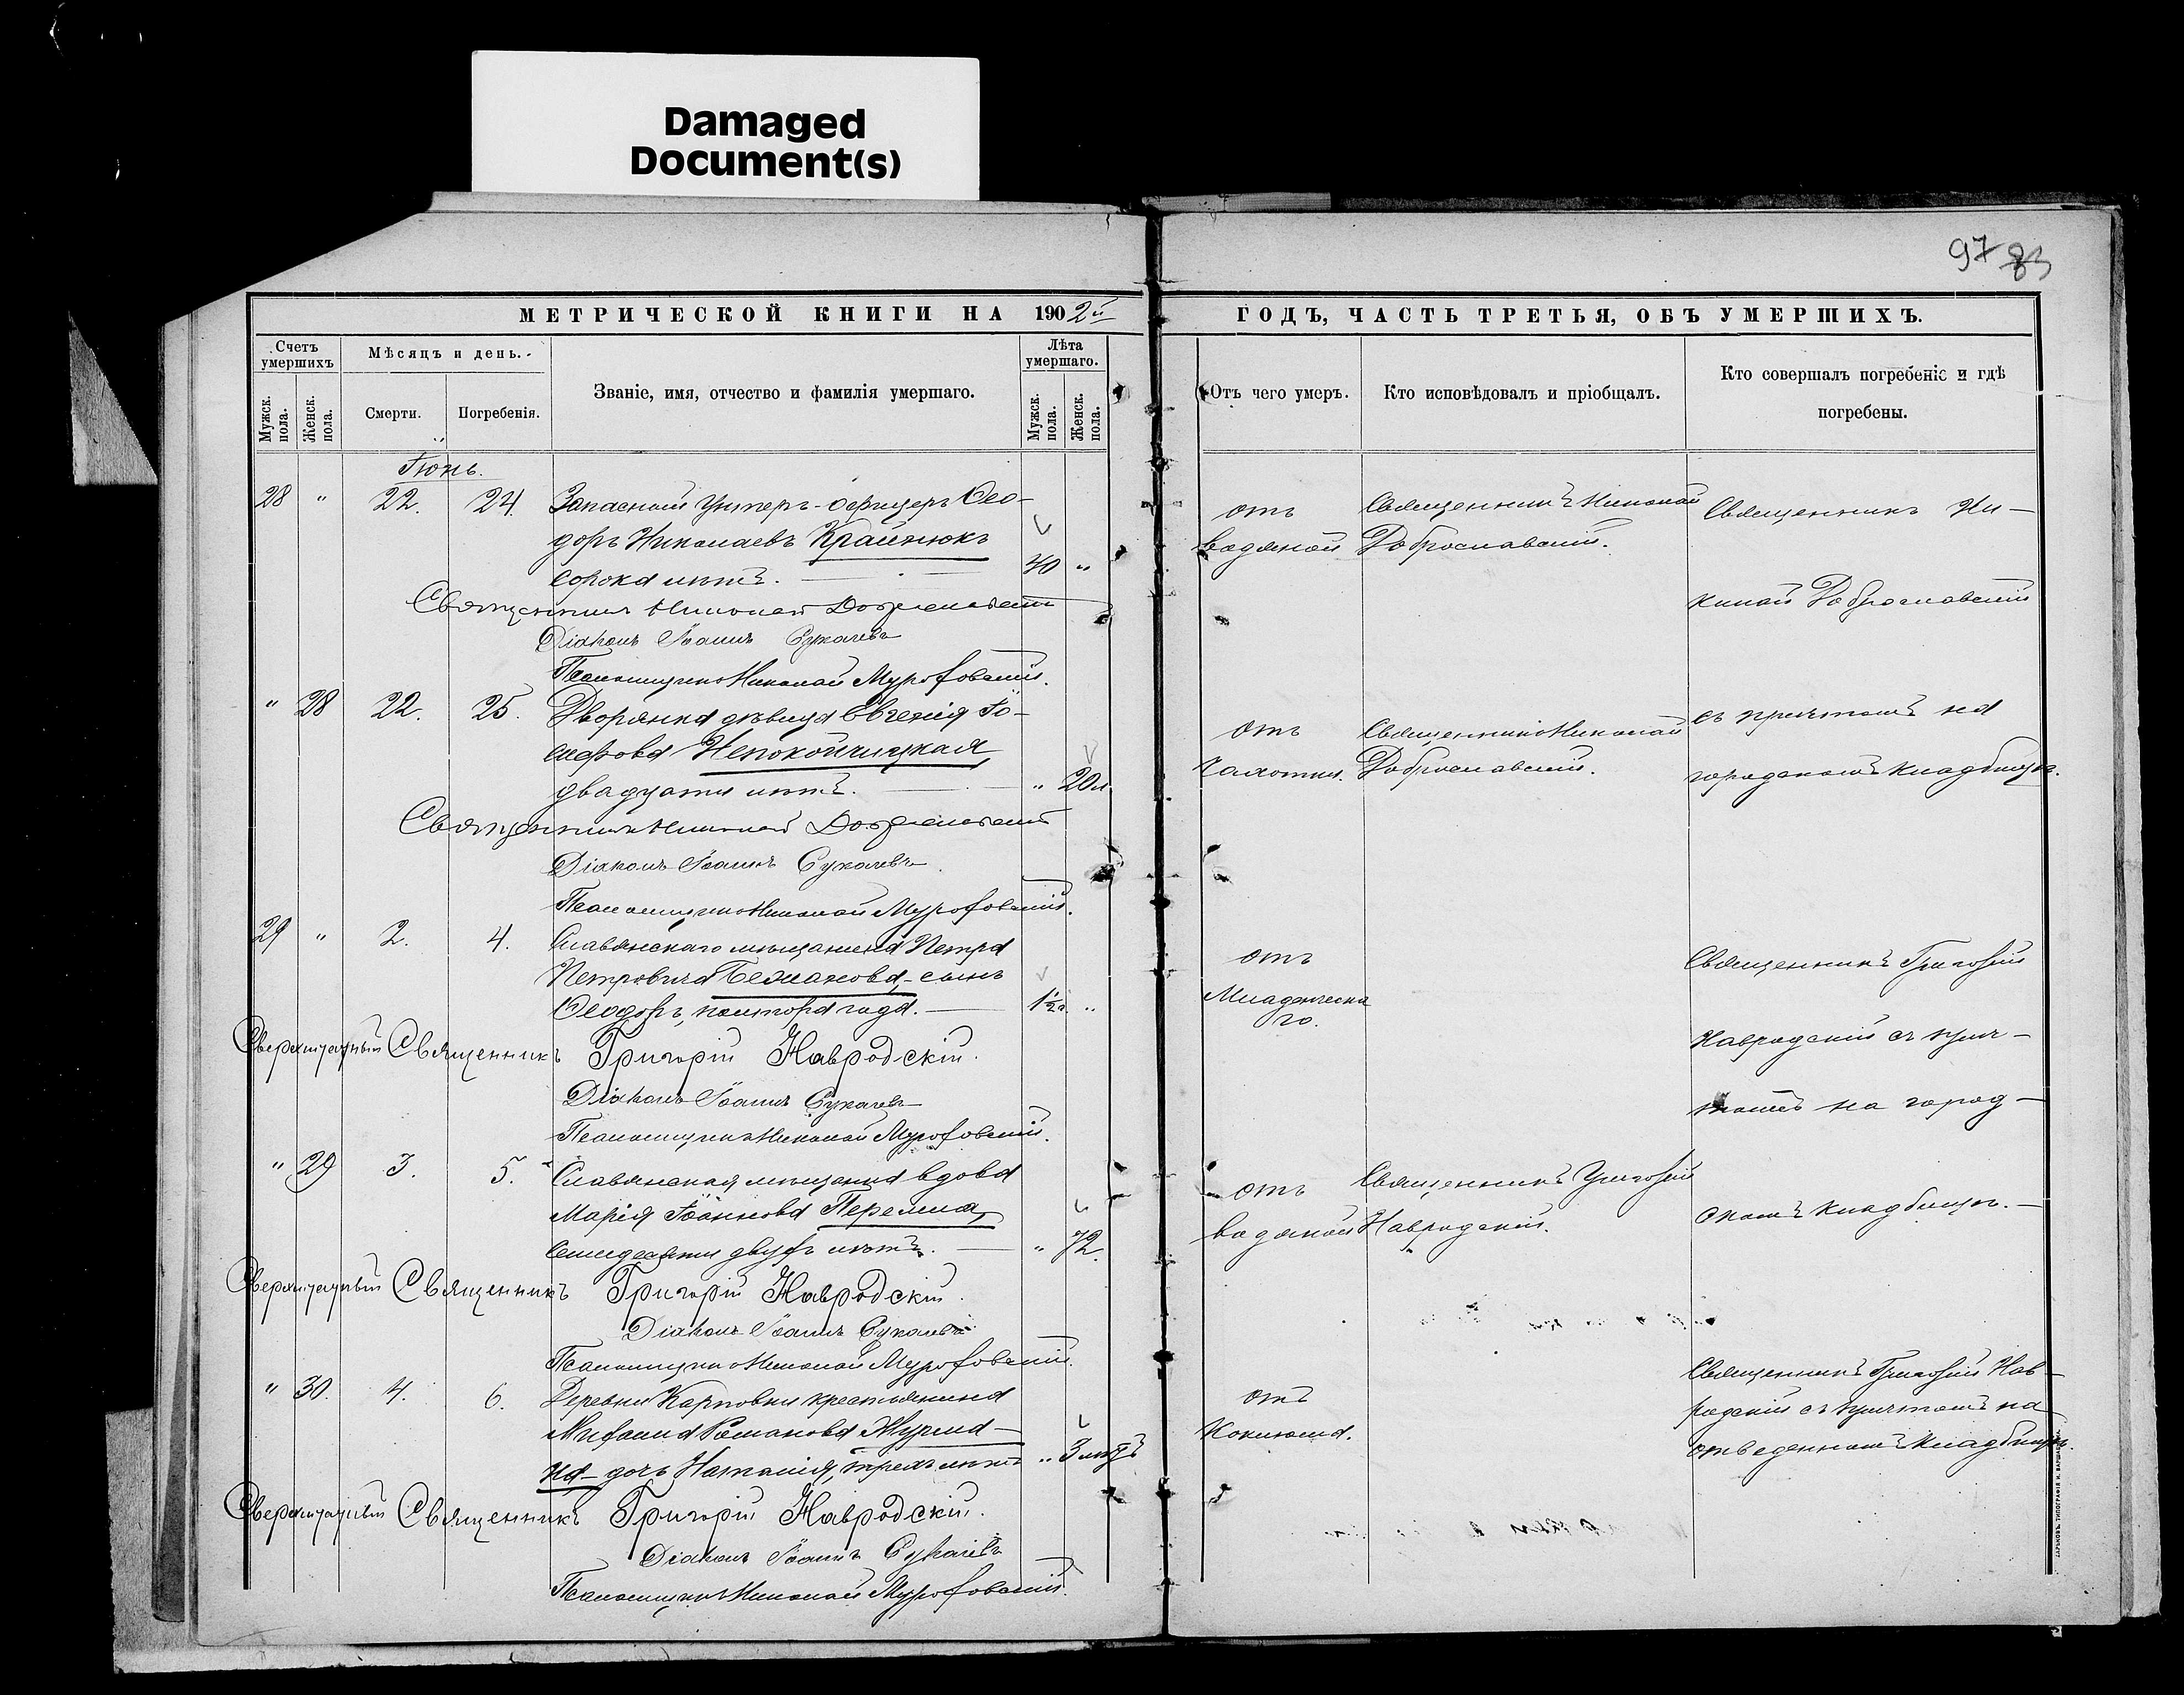 Damaged
Document(s)
97 83
МЕТРИЧЕСКОЙ КНИГИ НА 1902й
ГОДЪ, ЧАСТЬ ТРЕТЬЯ, ОБЪ УМЕРШИХЪ.
Счетъ умершихъ
Мужск. пола.
Женск. пола.
Мѣсяцъ и день.
Смерти.
Погребенія.
Званіе, имя, отчество и фамилія умершаго.
Лѣта умершаго.
Мужск. пола.
Женск. пола.
Отъ чего умеръ.
Кто исповѣдовалъ и пріобщалъ.
Кто совершалъ погребеніе и гдѣ
погребены.
Іюнь.
28 " 22. 24. Запасный Унтеръ-офицеръ Ѳео-
доръ Николаевъ Крайнюкъ
сорока лѣтъ. 40 "
отъ
водяной
Священникъ Николай
Доброславскій.
Священникъ Ни-
колай Доброславскій
Священникъ Николай Доброславскій
Діаконъ Іоаннъ Сукачевъ
Псаломщикъ Николай
" 28 22. 25. Дворянка дѣвица Евгенія Іо-
сифова Непокойчицкая,
двадцати лѣтъ. " 20 л.
отъ
чахотки.
Священникъ Николай
Доброславскій.
съ причтомъ на
городскомъ кладбищѣ.
Священникъ Николай Доброславскій
Діаконъ Іоаннъ Сукачевъ
Псаломщикъ Николай
29 " 2. 4. Славянскаго мѣщанина Петра
Петровича сынъ
Ѳеодоръ, полтора года. 1½ "
отъ
Младенческа
го.
Священникъ Григорій
Навродскій съ прич-
томъ на город-
Сверхштатный Священникъ Григорій Навродскій.
Діаконъ Іоаннъ Сукачевъ
Псаломщикъ Николай
" 29 3. 5. Славянская мѣщанка вдова
Марія Іоаннова
семидесяти двухъ лѣтъ. " 72.
отъ
водяной
Священникъ Григорій
Навродскій.
скомъ кладбищѣ.
Сверхштатный Священникъ Григорій Навродскій.
Діаконъ Іоаннъ Сукачевъ
Псаломщикъ Николай
" 30. 4. 6. Деревни Карповки крестьянина
Михаила Романова
дочь Наталія, трехъ лѣтъ " 3
отъ
Коклюша.
Священникъ Григорій Нав-
родскій съ причтомъ на
отведенномъ кладбищѣ.
Сверхштатный Священникъ Григорій Навродскій.
Діаконъ Іоаннъ Сукачевъ
Псаломщикъ Николай